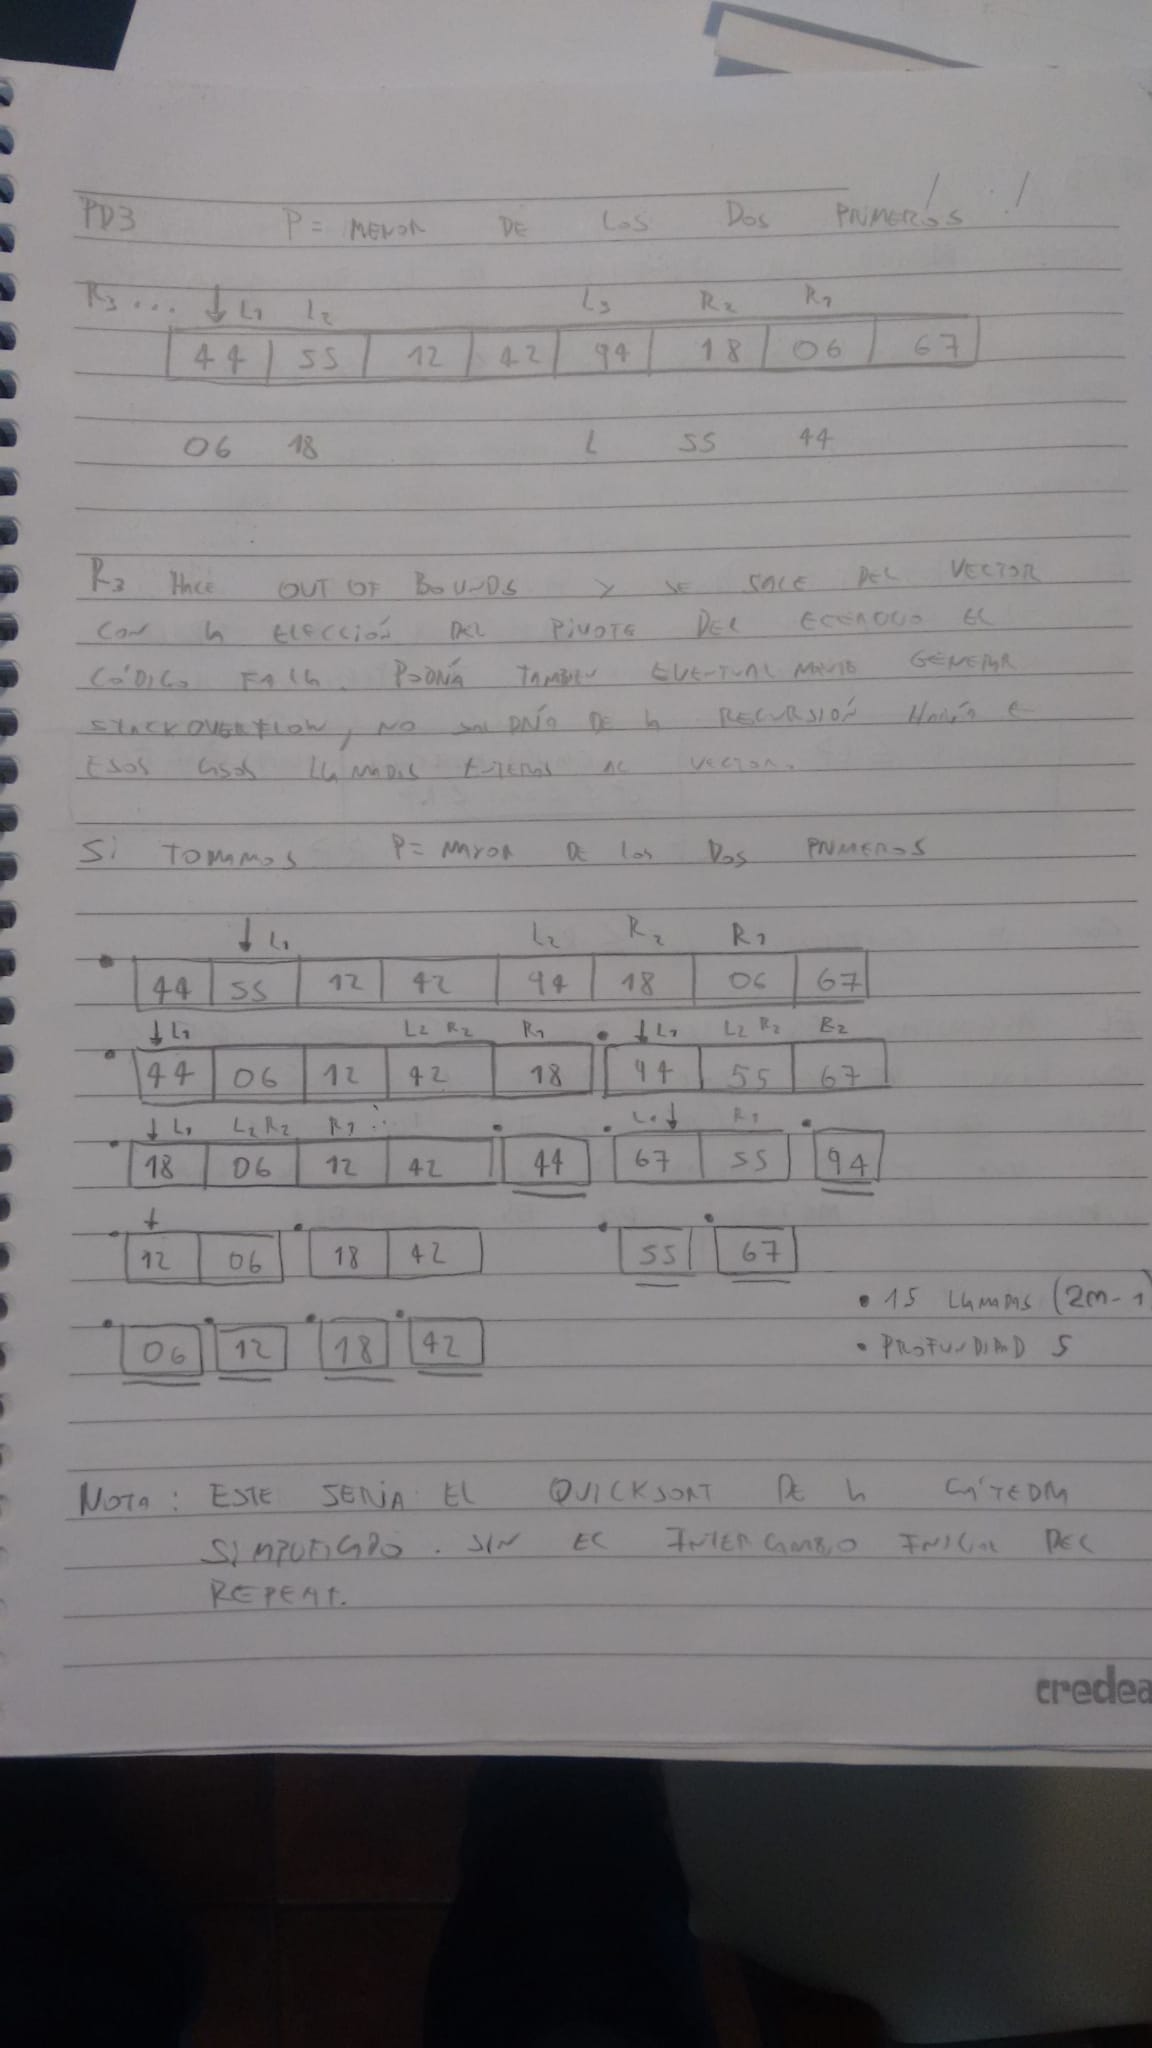 PD3 P = MENOR DE LOS DOS PRIMEROS / . /
R3 ... ↓ L1 L2 L3 R2 R1
44 55 12 42 94 18 06 67
06 18 L 55 44
R3 HACE OUT OF BOUNDS Y SE SALE DEL VECTOR
CON LA ELECCIÓN DEL PIVOTE DEL EL
CÓDIGO FALLA. PODRÍA TAMBIEN EVENTUALMENTE GENERAR
STACKOVERFLOW, NO SALDRÍA DE LA RECURSIÓN HARÍA E
ESOS CASOS LLAMADAS ENTERAS AL VECTOR.
Si TOMAMOS P = MAYOR DE LOS DOS PRIMEROS
↓ L1 L2 R2 R1
• 44 55 12 42 94 18 06 67
↓ L1 L2 R2 R1 • ↓ L1 L2 R2 R2
• 44 06 12 42 18 94 55 67
• ↓ L1 L2 R2 R1 • • L1 ↓ R1 •
18 06 12 42 44 67 55 94
• ↓ • • •
12 06 18 42 55 67
• 15 LLAMADAS (2n-1)
• • • •
06 12 18 42
• PROFUNDIDAD 5
NOTA: ESTE SERIA EL QUICKSORT DE LA CÁTEDRA
SIMPLIFICADO. SIN EL INTERCAMBIO INICIAL DEL
REPEAT.
credea